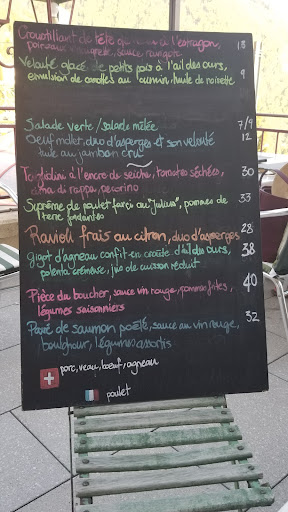 Croustillant de tête de à l'estragon, 18
sauce ravigote
Velouté glacé de petits pois à l'ail des ours, 9
émulsion de carottes au cumin, huile de noisette
Salade verte / salade mêlée 7/9
Oeuf mollet, duo d'asperges et son velouté 12
tuile au jambon cru
Tagliolini à l'encre de seiche, tomates séchées, 30
cima di rappa, pecorino
Suprême de poulet farçi au "Julius", pommes de 33
terre fondantes
Ravioli frais au citron, duo d'asperges 28
Gigot d'agneau confit en croûte d'ail des ours, 38
polenta crémeuse, jus de cuisson réduit
Pièce du boucher, sauce vin rouge, pommes frites, 40
légumes saisonniers
Pavé de saumon poêlé, sauce au vin rouge, 32
boulghour, légumes assortis
porc, veau, boeuf, agneau
poulet